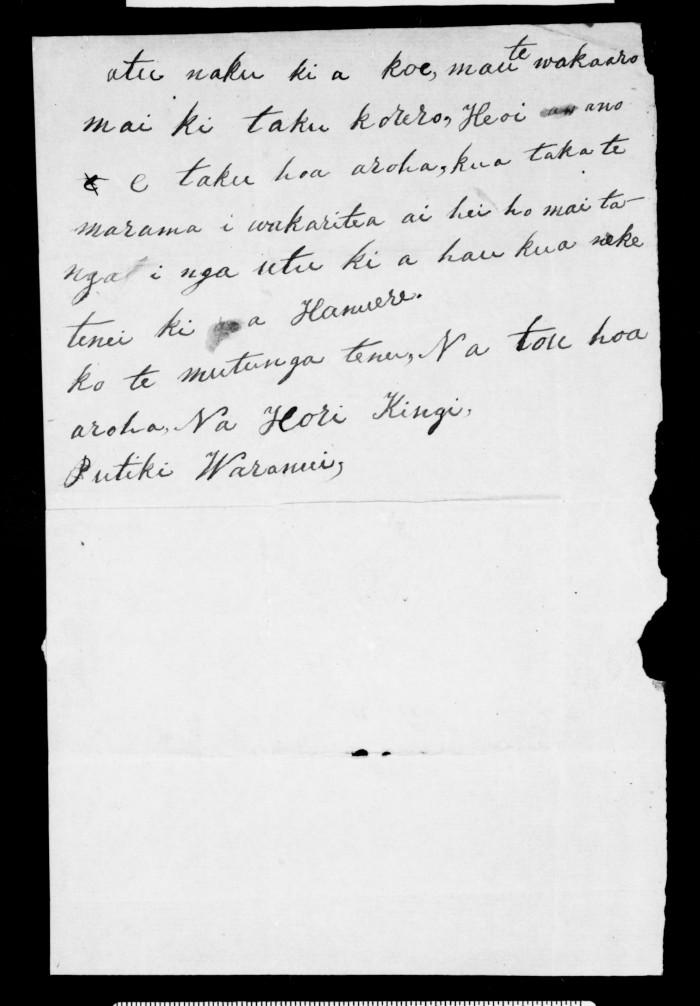 atu naku ki a koe, mau te wakaaro
mai ki taku korero, Heoi ano
e taku hoa aroha, kua taka te
marama i wakaritea ai hei ho mai ta-
nga i nga utu ki a hau kua neke
tenei ki a Hanuere.
ko te mutunga tenei, Na tou hoa
aroha, Na Hori Kingi,
Putiki Waranui,